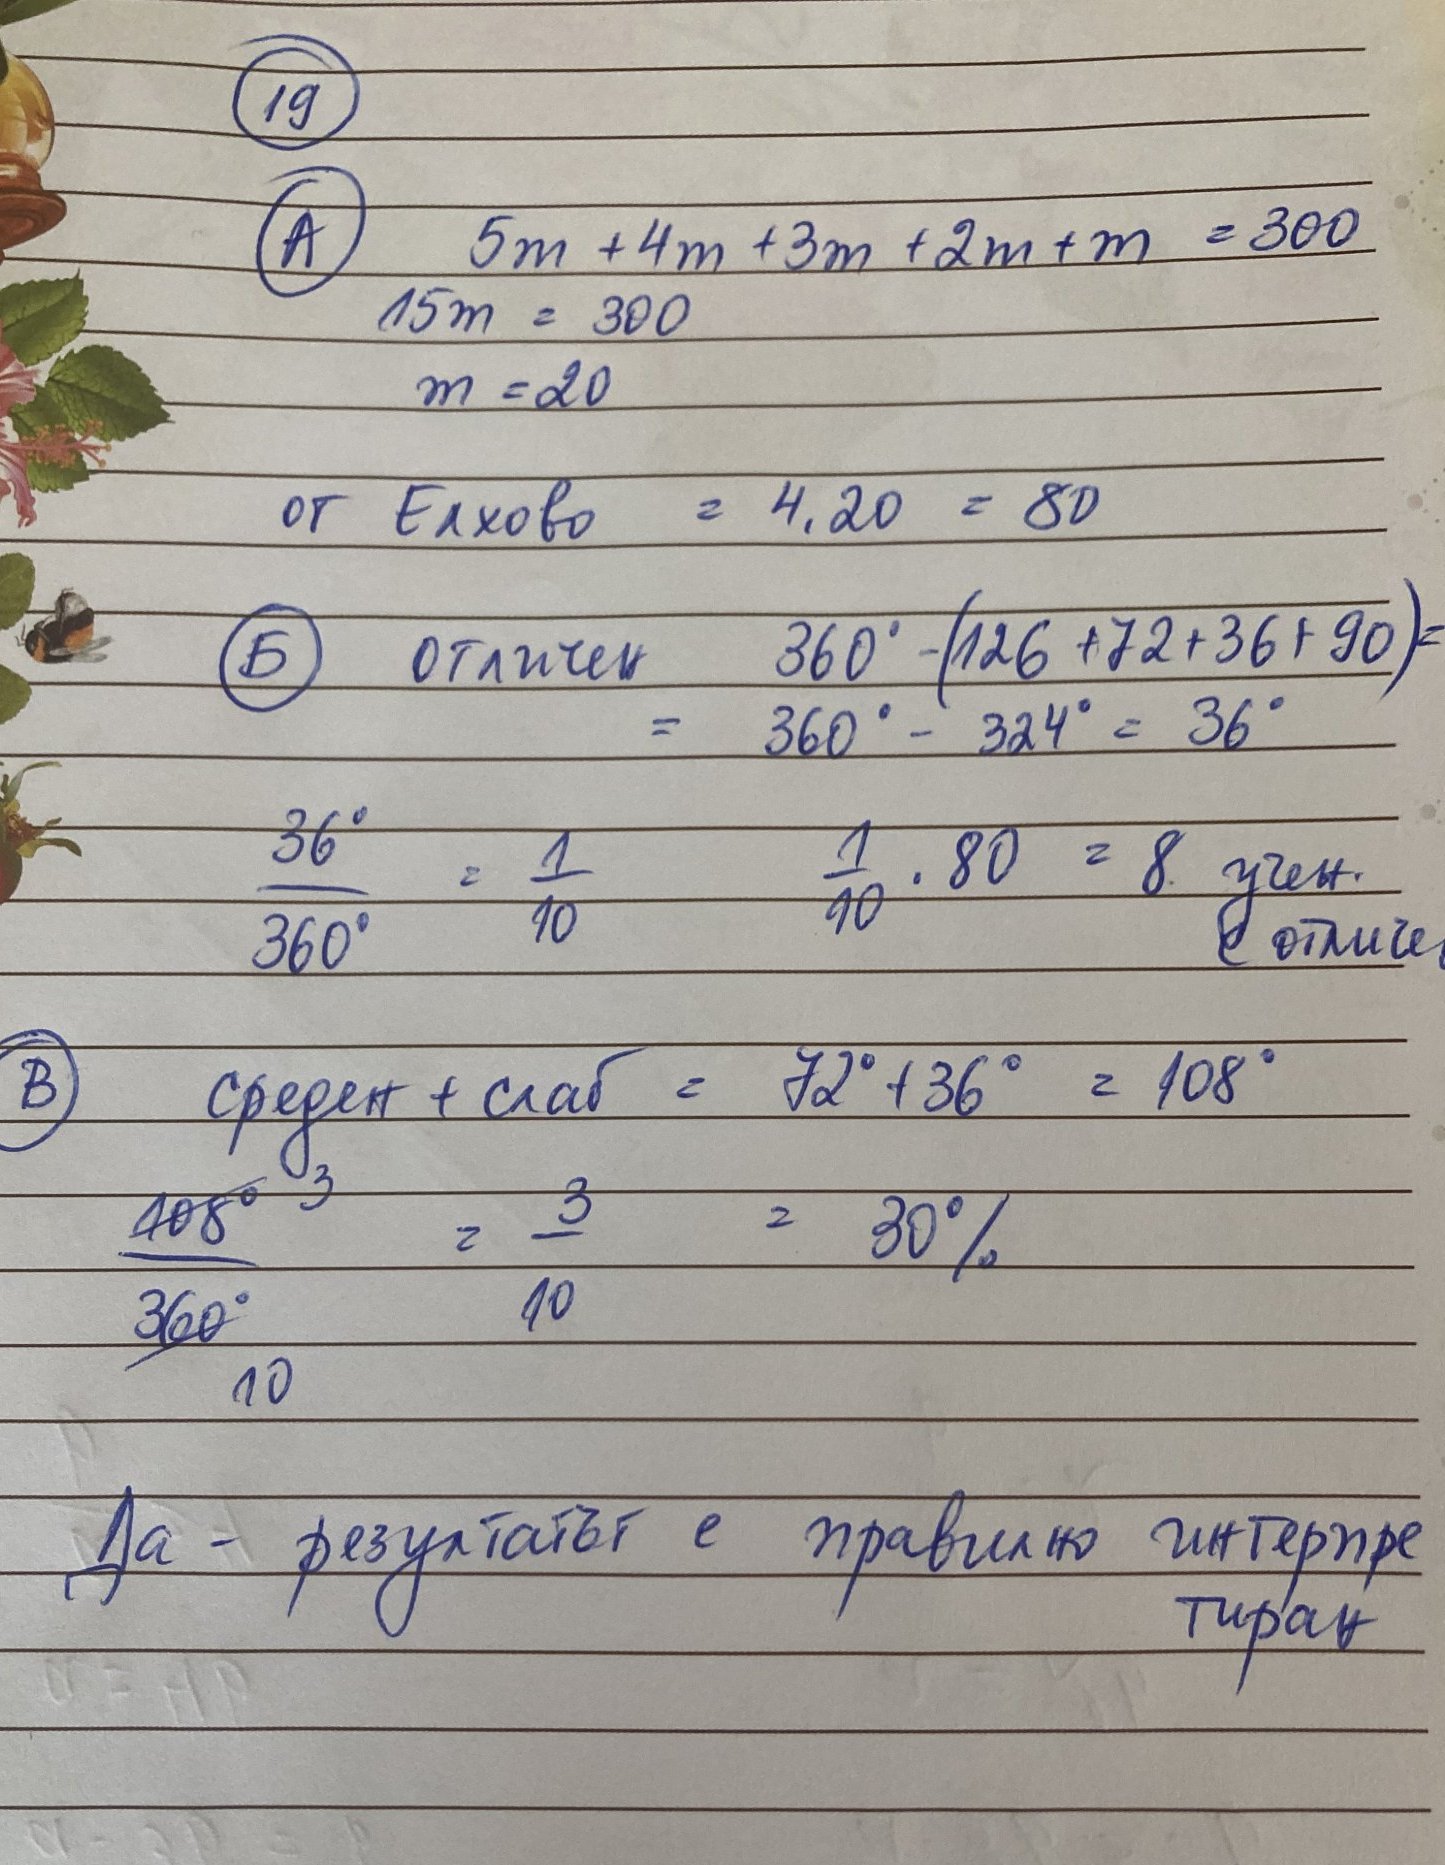 19
А 5m + 4m + 3m + 2m + m = 300
15m = 300
m = 20
от Елхово = 4.20 = 80
Б отличен 360° - (126 + 72 + 36 + 90) =
= 360° - 324° = 36°
36°/360° = 1/10 1/10 . 80 = 8 учен.
с отличен
В среден + слаб = 72° + 36° = 108°
108° 3 / 360° 10 = 3/10 = 30%
Да - резултатът е правилно интерпре
тиран